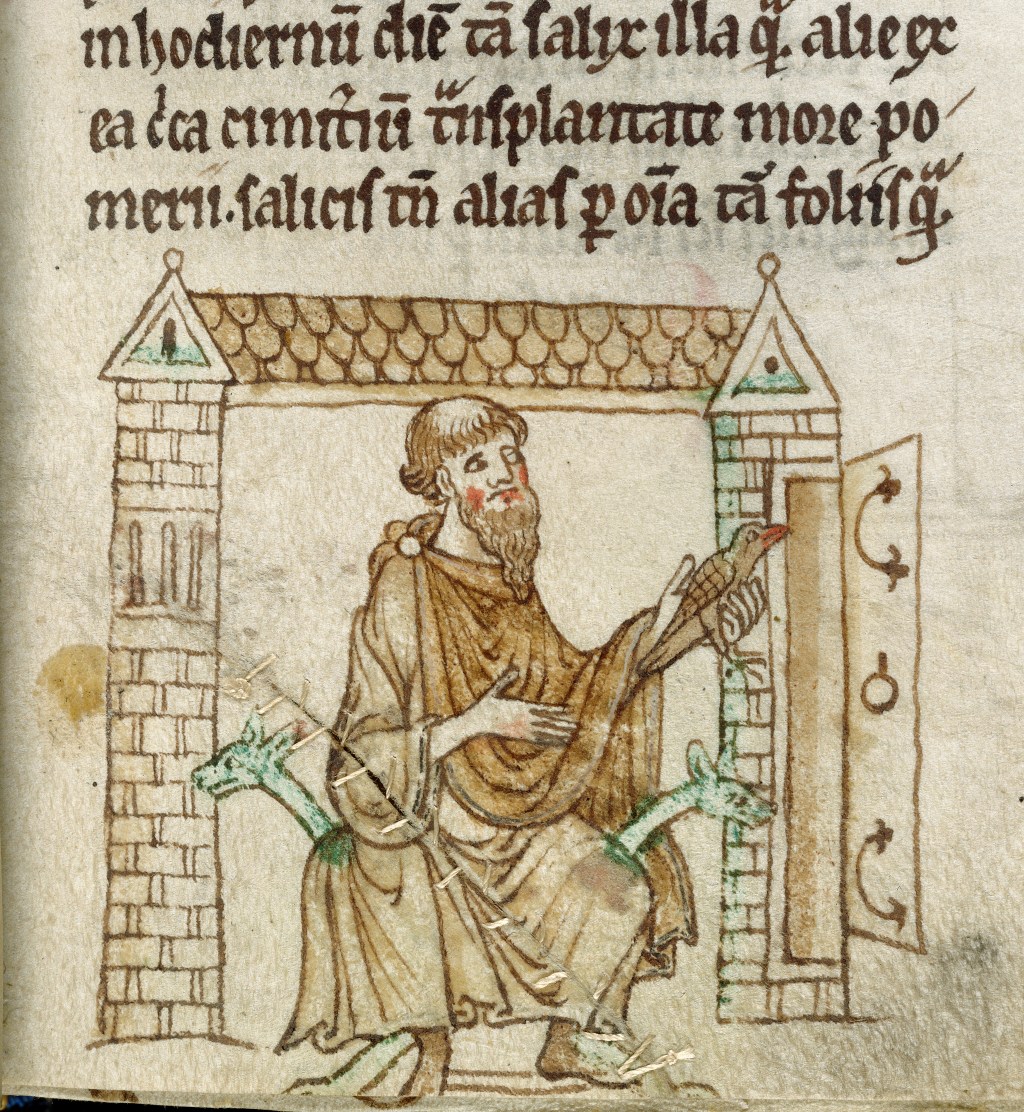 in hodiernū diē tā salix illa qͣ. alie ex
ea c̓ca cimit̓iū tͣnsplantate more po
merii. salicis tn̄ alias ꝑ oīa tā foliis qͣ.